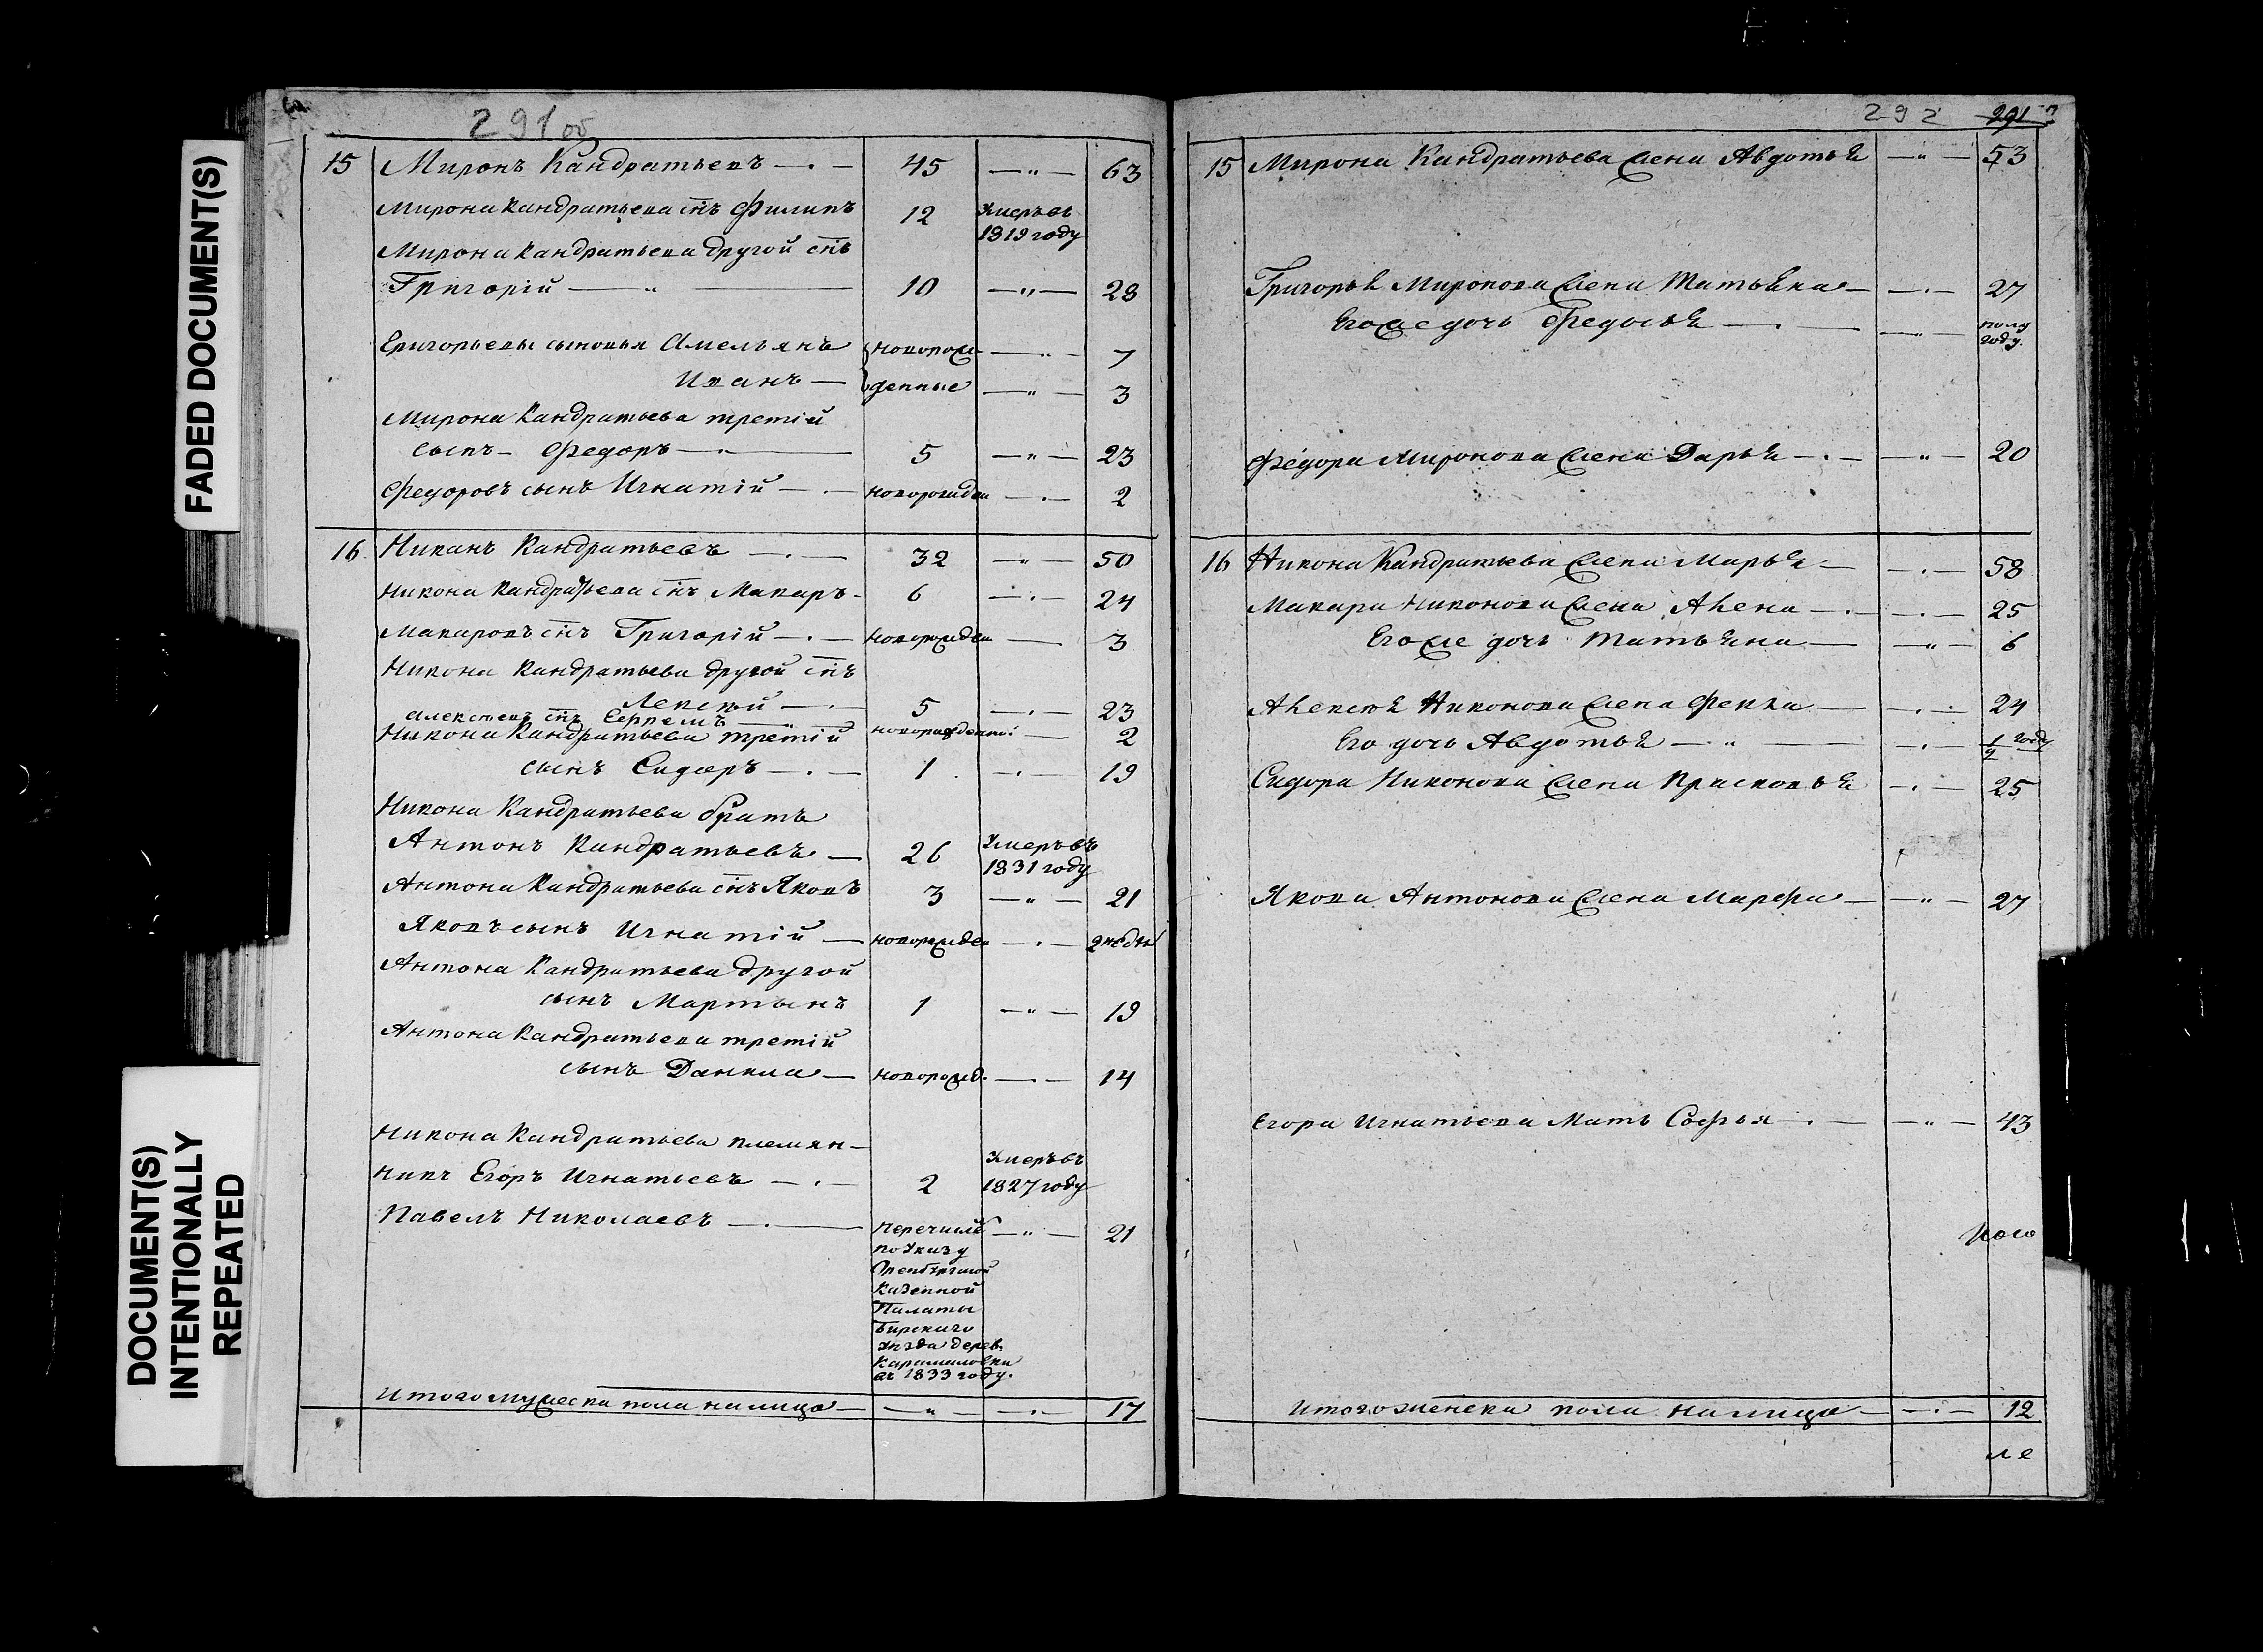 FADED DOCUMENT(S)
DOCUMENT(S)
INTENTIONALLY
REPEATED
291об
15 Миронъ Кандратьевъ 45 63
Мирона Кандратьева снъ Филипъ 12 Умеръ въ
1819 году
Мирона Кандратьева другой снъ
Григорій 10 28
Григорьевы сыновья Амельянъ новорож- 7
Иванъ денные 3
Мирона Кандратьева третій
сынъ Федоръ 5 23
Федоровъ сынъ Игнатій новорожден 2
16 Никанъ Кандратьевъ 32 50
Никона Кандратьева снъ Макаръ 6 24
Макаровъ снъ Григорій новорожден 3
Никона Кандратьева другой снъ
Лексѣй 5 23
Алексѣевъ снъ новорожденной 2
Никона Кандратьева третій
сынъ Сидоръ 1 19
Никона Кандратьева братъ
Антонъ Кандратьевъ 26 Умеръ въ
1831 году
Антона Кандратьева снъ Яковъ 3 21
Яковъ сынъ Игнатій новорожден 2 недѣл
Антона Кандратьева другой
сынъ Мартынъ 1 19
Антона Кандратьева третій
сынъ Данила новорожд. 14
Никона Кандратьева племян-
никъ Егоръ Игнатьевъ 2 Умеръ въ
1827 году
Павелъ Николаевъ 21
перечисл
по Указу
Оренбургской
Казенной
Палаты
Бирскаго
уѣзда дерев.
въ 1833 году.
Итого мужеска пола на лицо 17
292 291
15 Мирона Кандратьева жена Авдотья 53
Григорья Миронова жена Татьяна 27
Его же дочь Федосья полу
году.
Федора Миронова жена Дарья 20
16 Никона Кандратьева жена Марья 58
Макара Никонова жена Алена 25
Его же дочь Татьяна 6
Алексѣя Никонова жена Фекла 24
Его дочь Авдотья 1/2 году
Сидора Никонова жена Прасковья 25
Якова Антонова жена Марфа 27
Егора Игнатьева Мать Софья 43
Итого женска пола на лицо 12